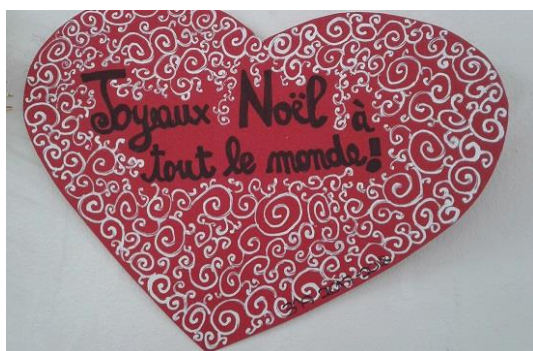 Joyeux Noël à
tout le monde!